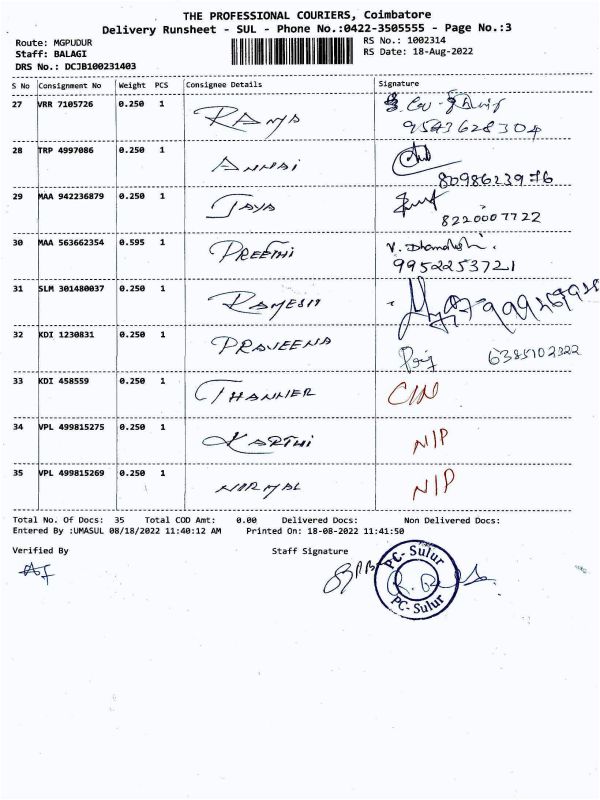 THE PROFESSIONAL COURIERS, Coimbatore
Delivery Runsheet - SUL - Phone No.:0422-3505555 - Page No.:3
Route: MGPUDUR
Staff: BALAGI
DRS No.: DCJB100231403
RS No.: 1002314
RS Date: 18-Aug-2022
S No Consignment No Weight PCS Consignee Details Signature
27 VRR 7105726 0.250 1 RAMYA
9543628304
28 TRP 4997086 0.250 1 ANNAI
8098623976
29 MAA 942236879 0.250 1 JAYA
8220007722
30 MAA 563662354 0.595 1 PREETHI
9952253721
31 SLM 301480037 0.250 1 RAMESH
32 KDI 1230831 0.250 1 PRAVEENA
6385102322
33 KDI 458559 0.250 1 THANNEER C/N
34 VPL 499815275 0.250 1 KARTHI N/P
35 VPL 499815269 0.250 1 NIRMAL N/P
Total No. Of Docs: 35 Total COD Amt: 0.00 Delivered Docs: Non Delivered Docs:
Entered By :UMASUL 08/18/2022 11:40:12 AM Printed On: 18-08-2022 11:41:50
Verified By Staff Signature
PC- Sulur
PC- Sulur